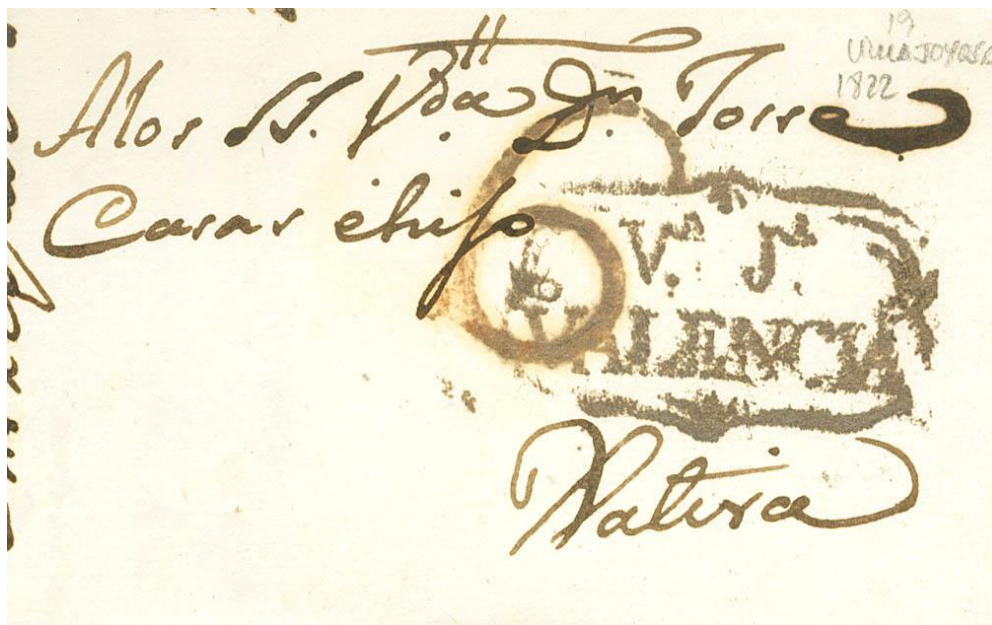 19
VILLAJOYOSA
1822
A los SS. V.da D.n Jose
Casas é hijo
V.a J.a
VALENCIA
Xativa